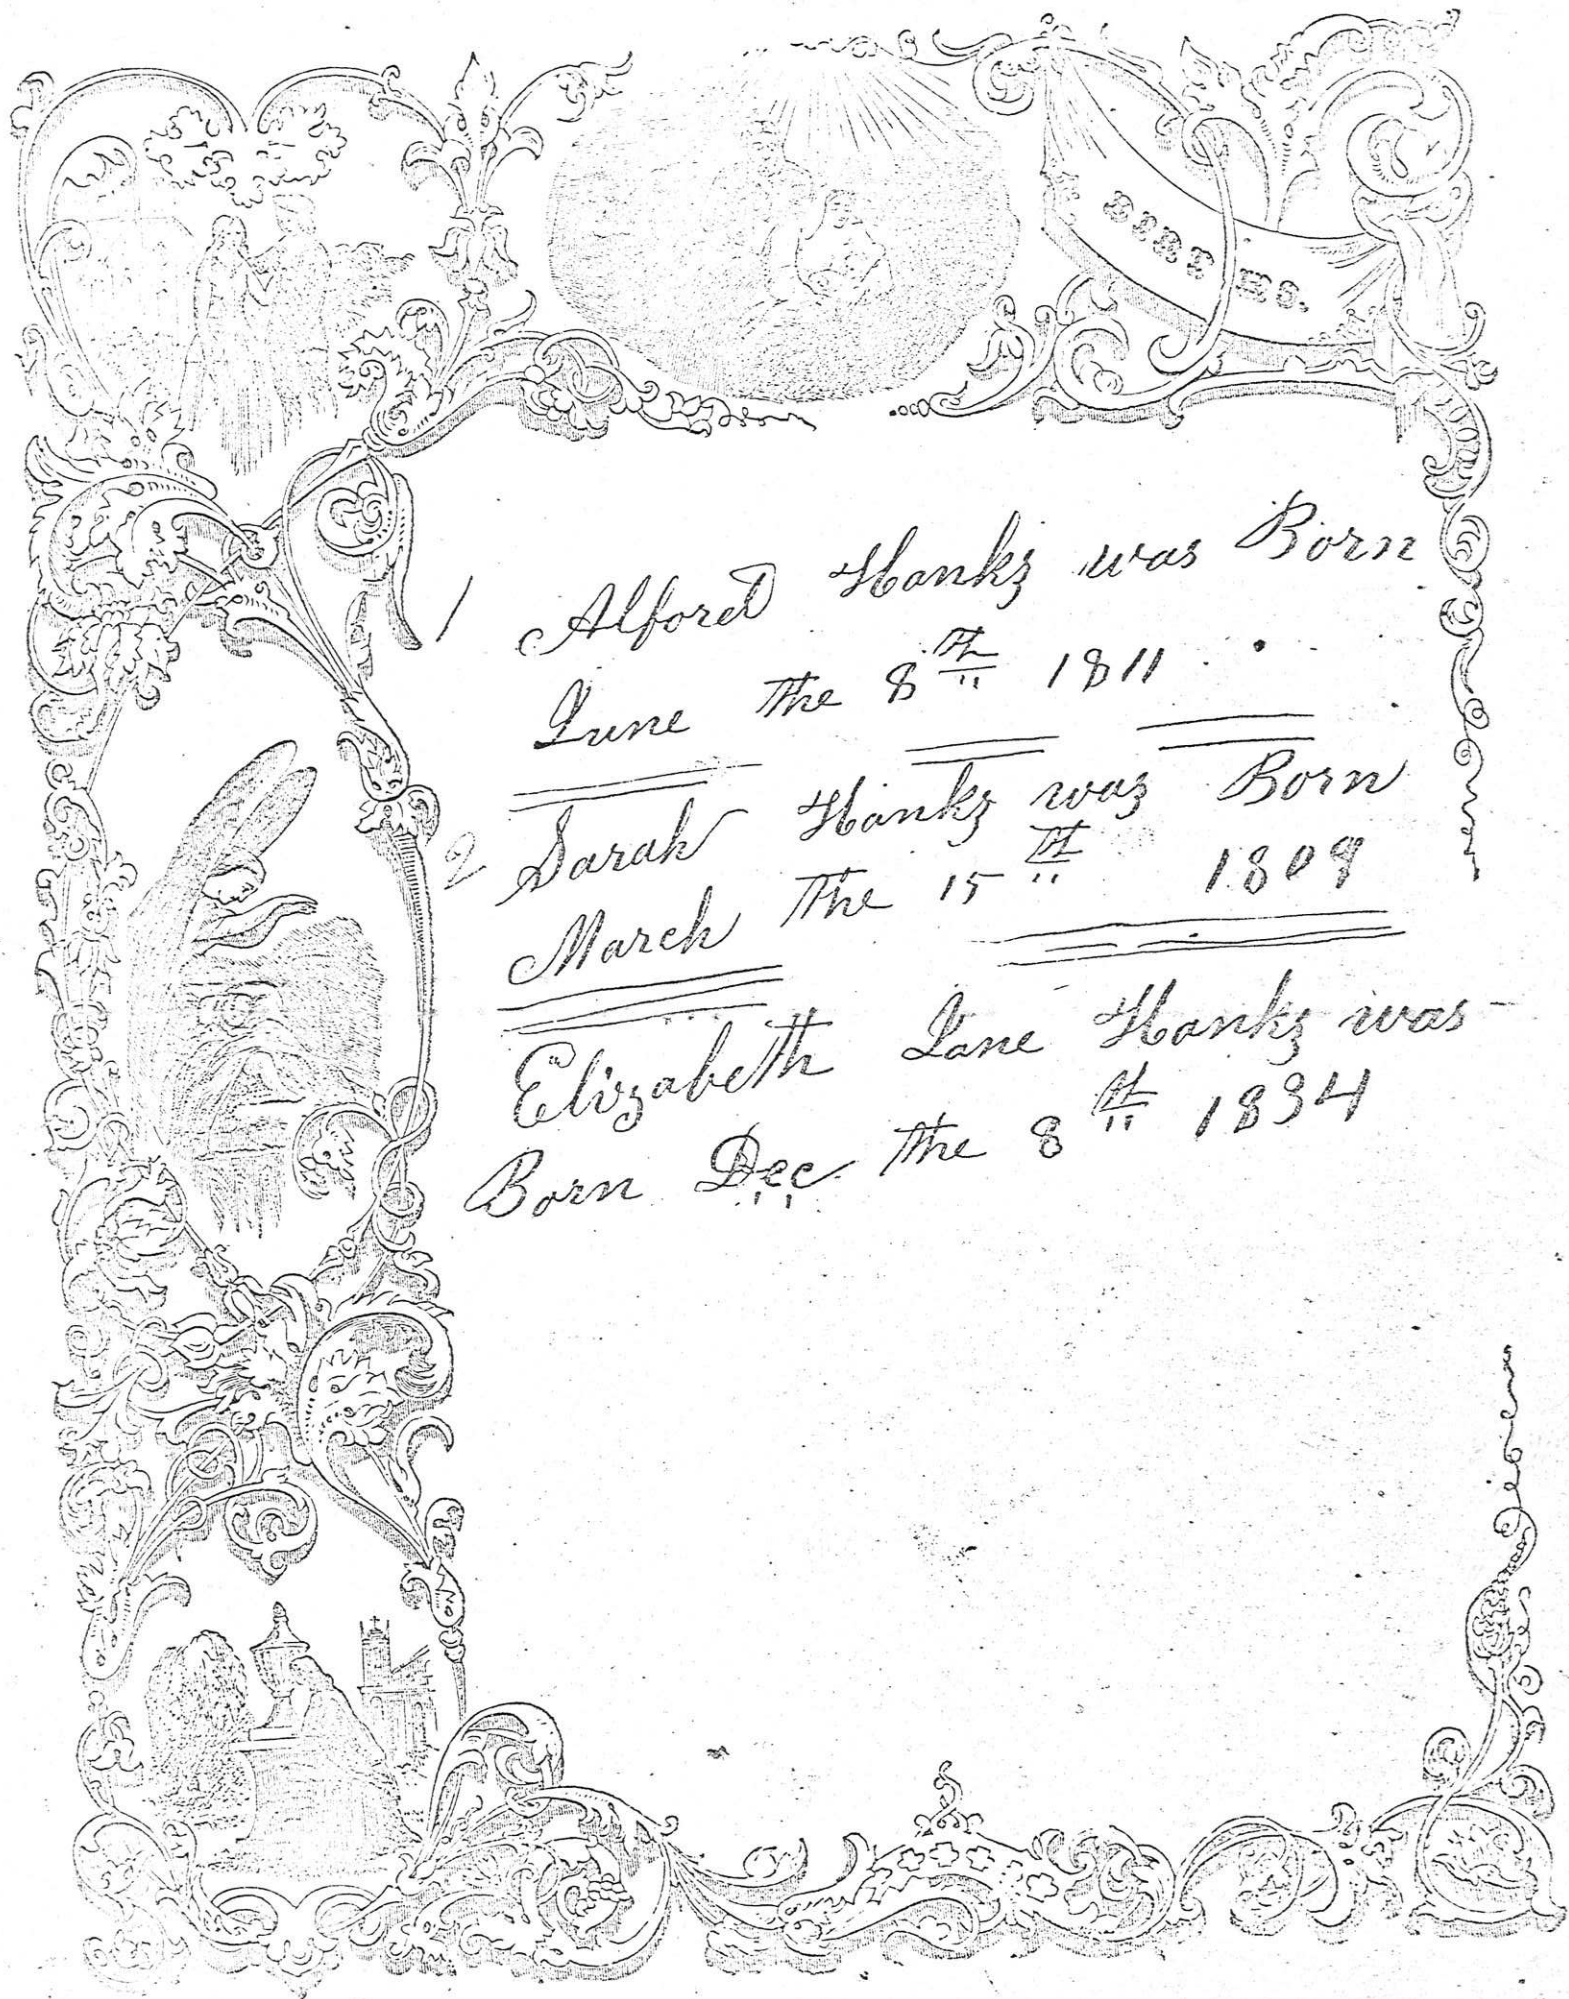 BIRTHS.
1 Alford Hanks was Born
June the 8th 1811
2 Sarah Hanks was Born
March the 15th 1809
Elizabeth Jane Hanks was
Born Dec the 8th 1834